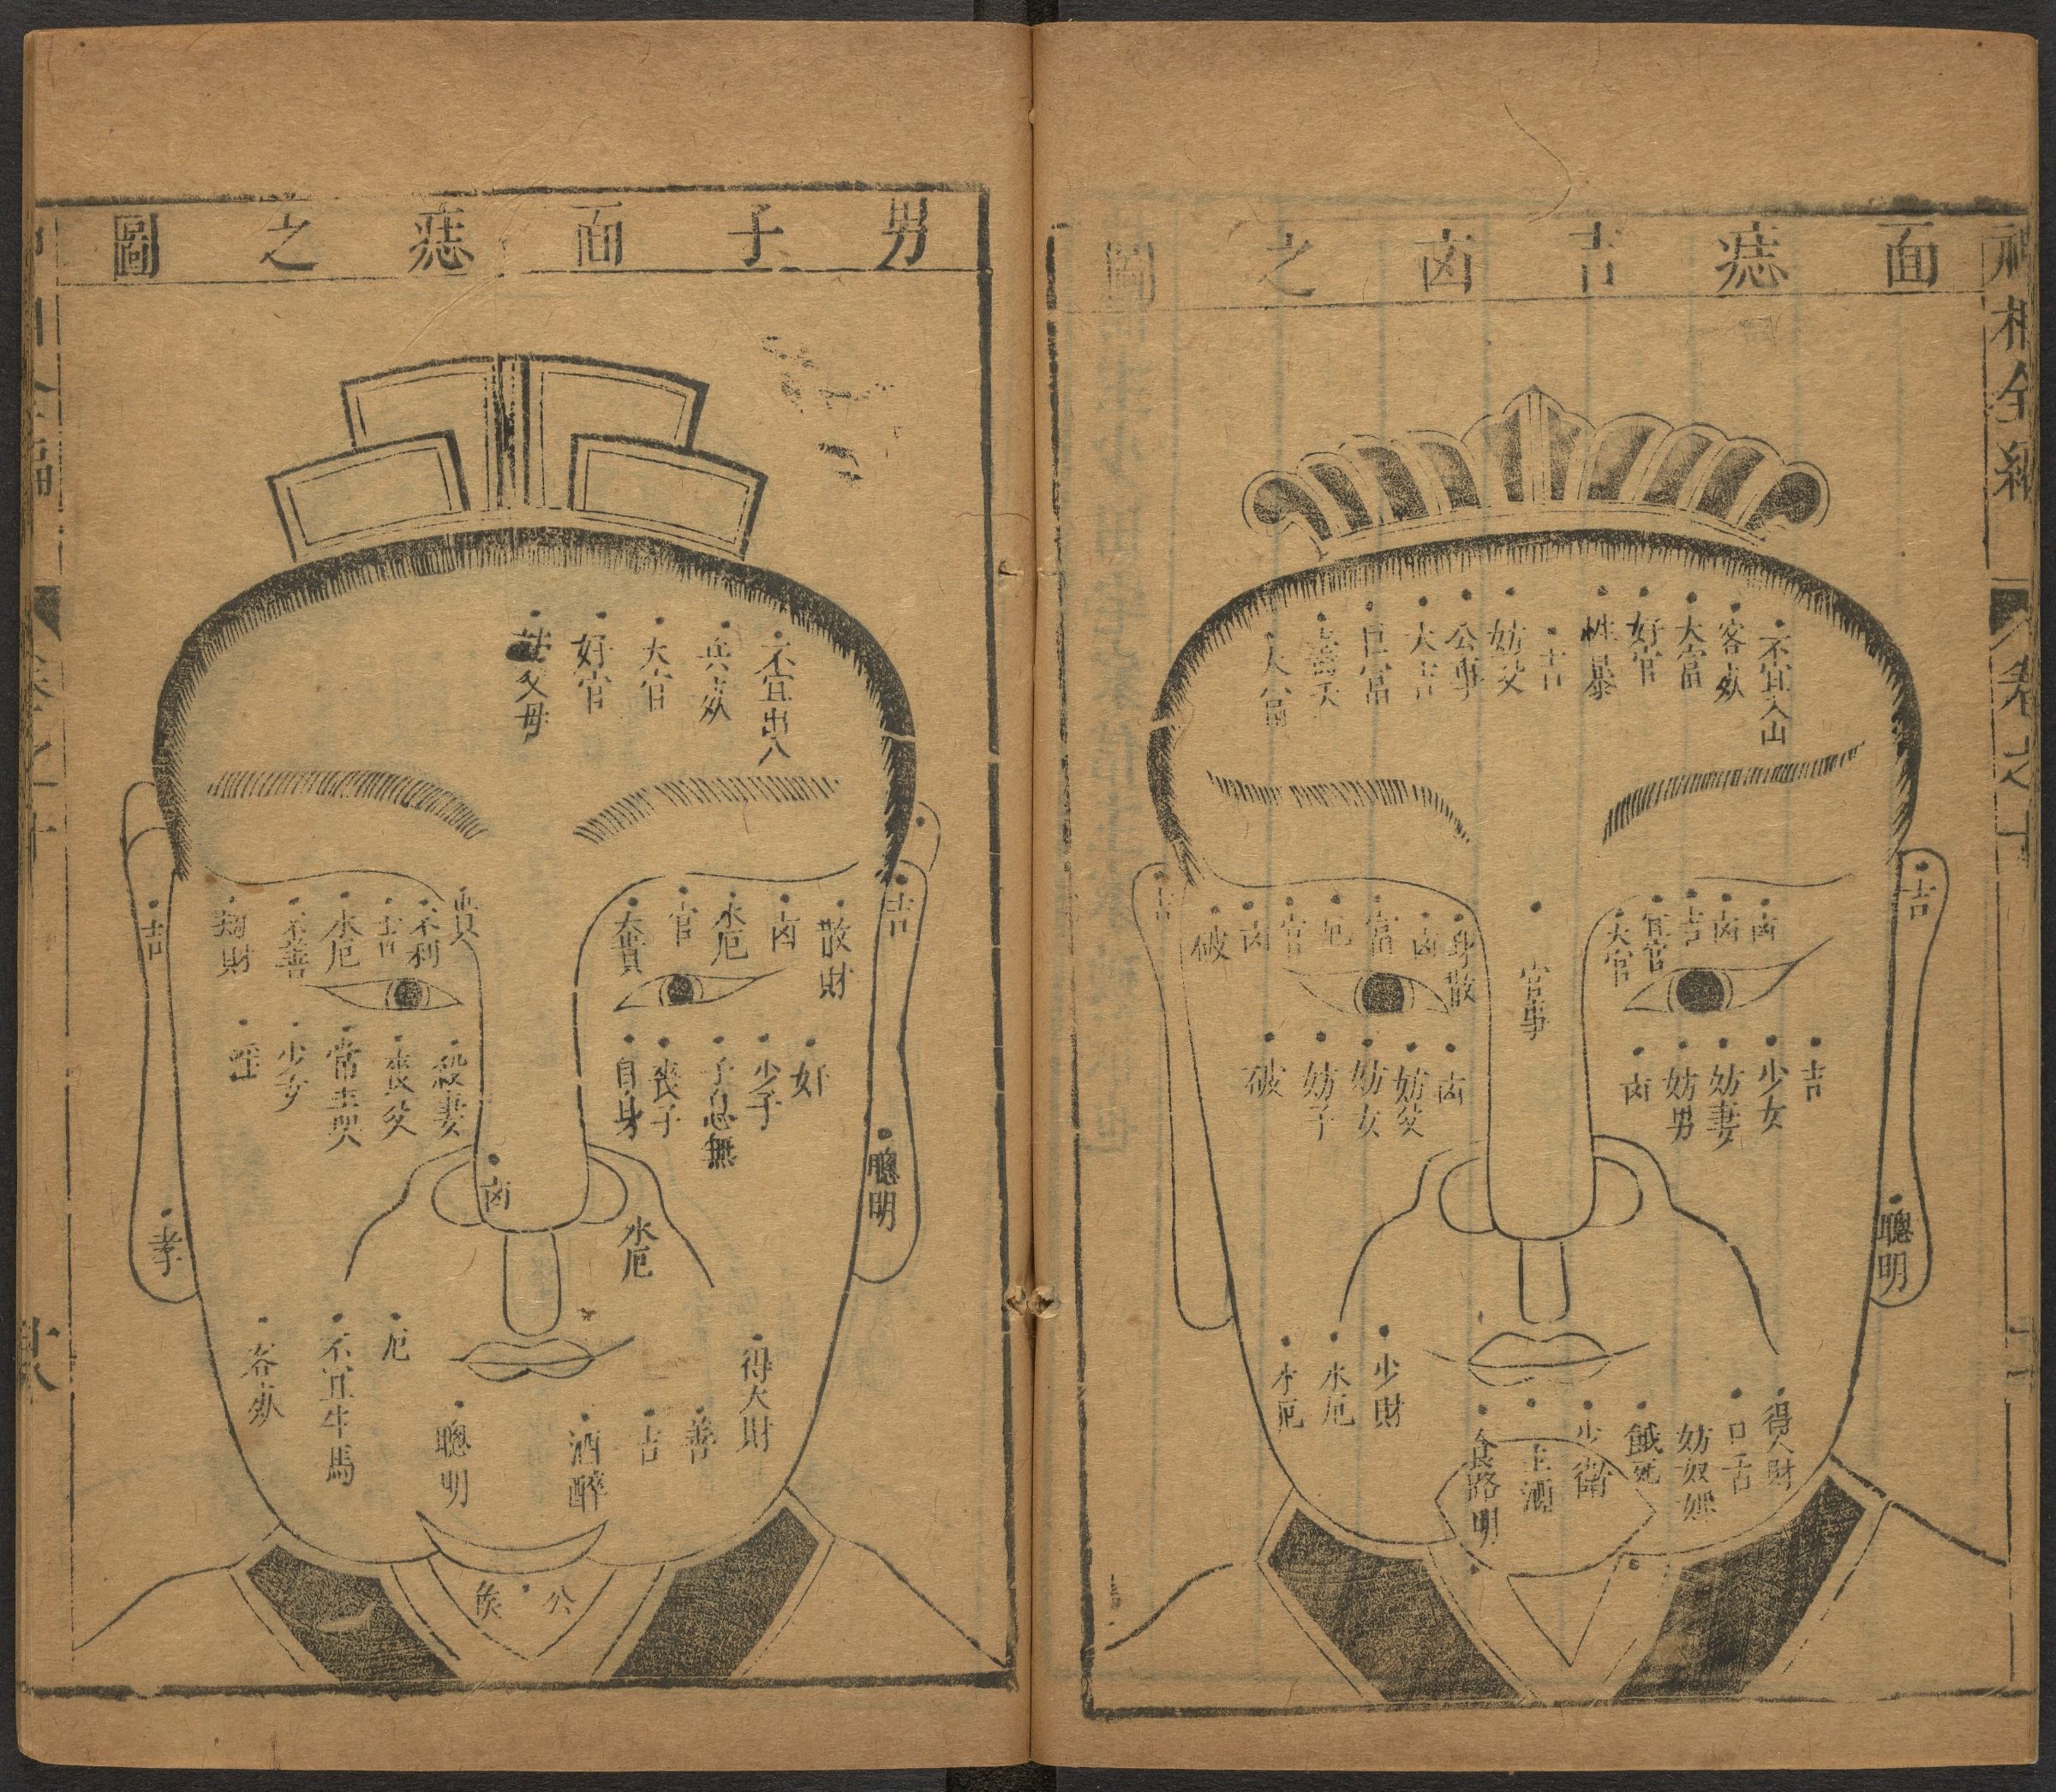 面痣吉凶之圖
不宜入山
客死
大富
好官
性暴
吉
妨父
公事
大吉
巨富
大富
凶
凶
吉
宜官
大官
官事
身散
凶
富
厄
官
凶
破
吉
吉
吉
少女
妨妻
妨男
凶
凶
妨父
妨女
妨子
破
聰明
得人財
口舌
妨奴婢
餓死
主酒
少財
水厄
水厄
神相全編
卷之十
男子面痣之圖
不宜出入
兵死
大官
好官
妨父母
吉
散財
凶
水厄
官
大貴
貴
不利
吉
水厄
不善
財
吉
奸
少子
子息無
喪子
自身
殺妻
喪父
常主哭
少女
聰明
凶
水厄
孝
得大財
善
吉
酒醉
聰明
厄
不宜牛馬
客死
公矦